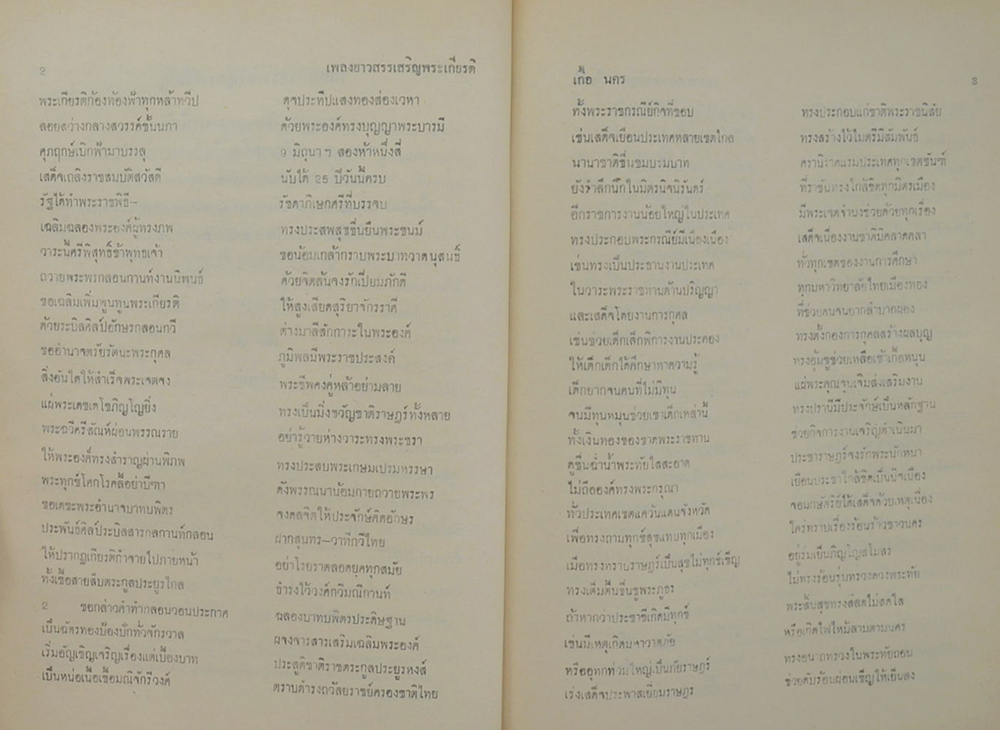 2 เพลงยาวสรรเสริญพระเกียรติ
พระเกียรติก้องท้องฟ้าทุกหล้าทวีป ดุจประทีปแสงทองส่องเวหา
ลอยสว่างกลางสวรรค์ชั้นนภา ด้วยพระองค์ทรงบุญญาพระบารมี
ศุภฤกษ์เบิกฟ้ามาบรรลุ 9 มิถุนาฯ สองห้าหนึ่งสี่
เสด็จเถลิงราชสมบัติสวัสดี นับได้ 25 ปีวันนี้ครบ
รัฐได้ทำพระราชพิธี- รัชดาภิเษกศรีที่บรรจบ
เฉลิมฉลองพระองค์ผู้ทรงภพ ทรงประสพสุขชื่นยืนพระชนม์
วาระนี้ศรีพิสุทธิ์ข้าพุทธเจ้า ขอน้อมเกล้ากราบพระบาทวาดนุสนธิ์
ถวายพระพรกลอนกานท์งานนิพนธ์ ด้วยจิตล้นจงรักเปี่ยมภักดี
ขอเฉลิมเพิ่มพูนทูนพระเกียรติ ให้สูงเสียดสุริยาจักรราศี
ด้วยระบิลศิลป์อักษรกลอนกวี ต่างมาลีสักการะในพระองค์
ขออำนาจตรัยรัตนะพระกุศล ภูมิพลมีพระราชประสงค์
สิ่งอันใดให้สำเร็จพระเจตจง พระชีพคงคู่หล้าอย่ามลาย
แผ่พระเดชเดโชภิญโญยิ่ง ทรงเป็นมิ่งขวัญชาติราษฎร์ทั้งหลาย
พระฉวีศรีสัณห์ผ่อนพรรณราย อย่ารู้วายห่างวาระทรงพระชรา
ให้พระองค์ทรงสำราญผ่านพิภพ ทรงประสบพระเกษมเปรมหรรษา
พระทุกข์โศกโรคลี้อย่าบีฑา ดังพรรณนาน้อมกายถวายพระพร
ขอเดชะพระอำนาจบาทบพิตร จงดลจิตให้ประจักษ์ศิตอักษร
ประพันธ์ศิลป์ประบิลสารกลกานท์กลอน ฝากสุนทร-วาทีกวีไทย
ให้ปรากฏเกียรติกำจายไปภายหน้า อย่าโรยราตลอดยุคทุกสมัย
ทั้งเชื้อสายสืบตระกูลประยูรไกล ธำรงไว้วงศ์กวิมณีกานท์
2 ขอกล่าวคำทำกลอนวอนประกาศ ฉลองบาทบพิตรประดิษฐาน
เป็นฉัตรทองป้องปักทั่วจักรวาล ผจงจารสารเสริมเฉลิมพระองค์
เริ่มอัญเชิญเจริญเรื่องแต่เบื้องบาท ประสูติชาติราชตระกูลประยูรหงส์
เป็นหน่อเนื้อเชื้อมณีจักรีวงศ์ ตราบดำรงถวัลยราชย์ครองชาติไทย
เกื้อ นคร 3
ทั้งพระราชกรณีย์กิจที่ชอบ ทรงประกอบแก่ชาติพระราชนิสัย
เช่นเสด็จเยือนประเทศหลายเขตไกล ทรงสร้างไว้ไมตรีมีสัมพันธ์
นานาชาติชื่นชมบรมบาท ครานิราศแรมประเทศทุกเขตขัณฑ์
ยังรำลึกนึกในมิตรนิจนิรันดร์ ที่ราชันทรงใกล้ชิดทุกมิตรเมือง
อีกราชการงานน้อยใหญ่ในประเทศ มีพระเจตจำนงช่วยด้วยทุกเรื่อง
ทรงประกอบพระกรณีย์มีเนืองเนือง เสด็จเนื่องงานชาติมิคลาดคลา
เช่นทรงเป็นประธานงานประเทศ ทั่วทุกเขตของงานการศึกษา
ในวาระพระราชทานด้านปริญญา ทุกมหาวิทยาลัยไทยเมืองทอง
และเสด็จโดยงานการกุศล ที่ช่วยคนจนยากลำบากผอง
เช่นช่วยเด็กเล็กพิการงานประคอง ทรงตั้งกองการกุศลสร้างผลบุญ
ให้เด็กเด็กได้ศึกษาหาความรู้ ทรงอุ้มชูช่วยเหลือเข้าเกื้อหนุน
เด็กยากจนคนที่ไม่มีทุน แผ่พระคุณจุนเจิมส่งเสริมงาน
จนมีทุนหมุนช่วยเขาเด็กเหล่านี้ ทรงปรานีมีประจักษ์เป็นหลักฐาน
ทั้งเงินทองของขาดพระราชทาน ช่วยกิจการงานเจริญดำเนินมา
ดูชื่นฉ่ำน้ำพระทัยใสสะอาด ประชาราษฎร์จงรักพระนักหนา
ไม่ถือองค์ทรงพระกรุณา เยือนประชาใกล้ชิดเป็นนิจเนื่อง
ทั่วประเทศเขตแคว้นแดนจังหวัด จอมกษัตริย์ได้เสด็จด้วยเหตุเนื่อง
เพื่อทรงถามทุกข์สุขแทบทุกเมือง ใคร่ทราบเรื่องร้อนร้าวชาวนคร
เมื่อทรงทราบราษฎร์เป็นสุขไม่ทุกข์เข็ญ อยู่ร่มเย็นภิญโญสโมสร
ทรงเต็มตื้นชื่นชูพระภูธร ไม่ทรงร้อนรุ่มทรวงดวงพระทัย
ถ้าหากว่าประชาชีเกิดมีทุกข์ พระสิ้นสุขทรงสลดไม่สดใส
เช่นมีเหตุเกิดมหาวาตภัย หรือเกิดไฟไหม้ลามตามนคร
หรืออุทกท่วมใหญ่เป็นภัยราษฎร์ ทรงอนาถทรวงในพระทัยถอน
เร่งเสด็จประพาสเยี่ยมราษฎร ช่วยดับร้อนผ่อนเข็ญให้เย็นลง